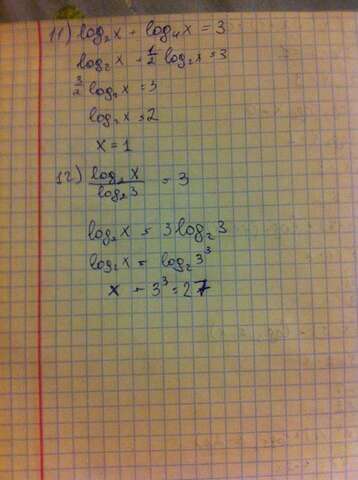 11) log₂x + log₄x = 3
log₂x + 1/2 log₂x = 3
3/2 log₂x = 3
log₂x = 2
x = 1
12) log₂x / log₂3 = 3
log₂x = 3log₂3
log₂x = log₂3³
x = 3³ = 27